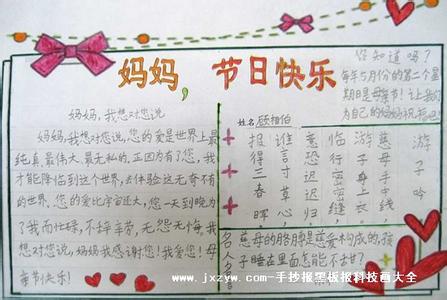 妈妈,节日快乐
你知道吗?
每年5月份的第二个星
期日是母亲节!让我们
为自己的妈妈祝福吧!
妈妈,我想对您说
妈妈,我想对您说,您的爱是世界上最
纯真、最伟大、最无私的,正因为有了您,我
才能降临到这个世界,去体验这无奇不有
的世界。您的爱比宇宙还大,您一天到晚为
了我而忙碌,不辞辛苦,无怨无悔,我
想对您说,妈妈我感谢您!我爱您!母
亲节快乐!
姓名
游子吟
慈母手中线
游子身上衣
临行密密缝
意恐迟迟归
谁言寸草心
报得三春晖
名人
慈母的胳膊是慈爱构成的,孩
子睡在里面怎能不甜?
www.jxzyw.com-手抄报黑板报科技画大全